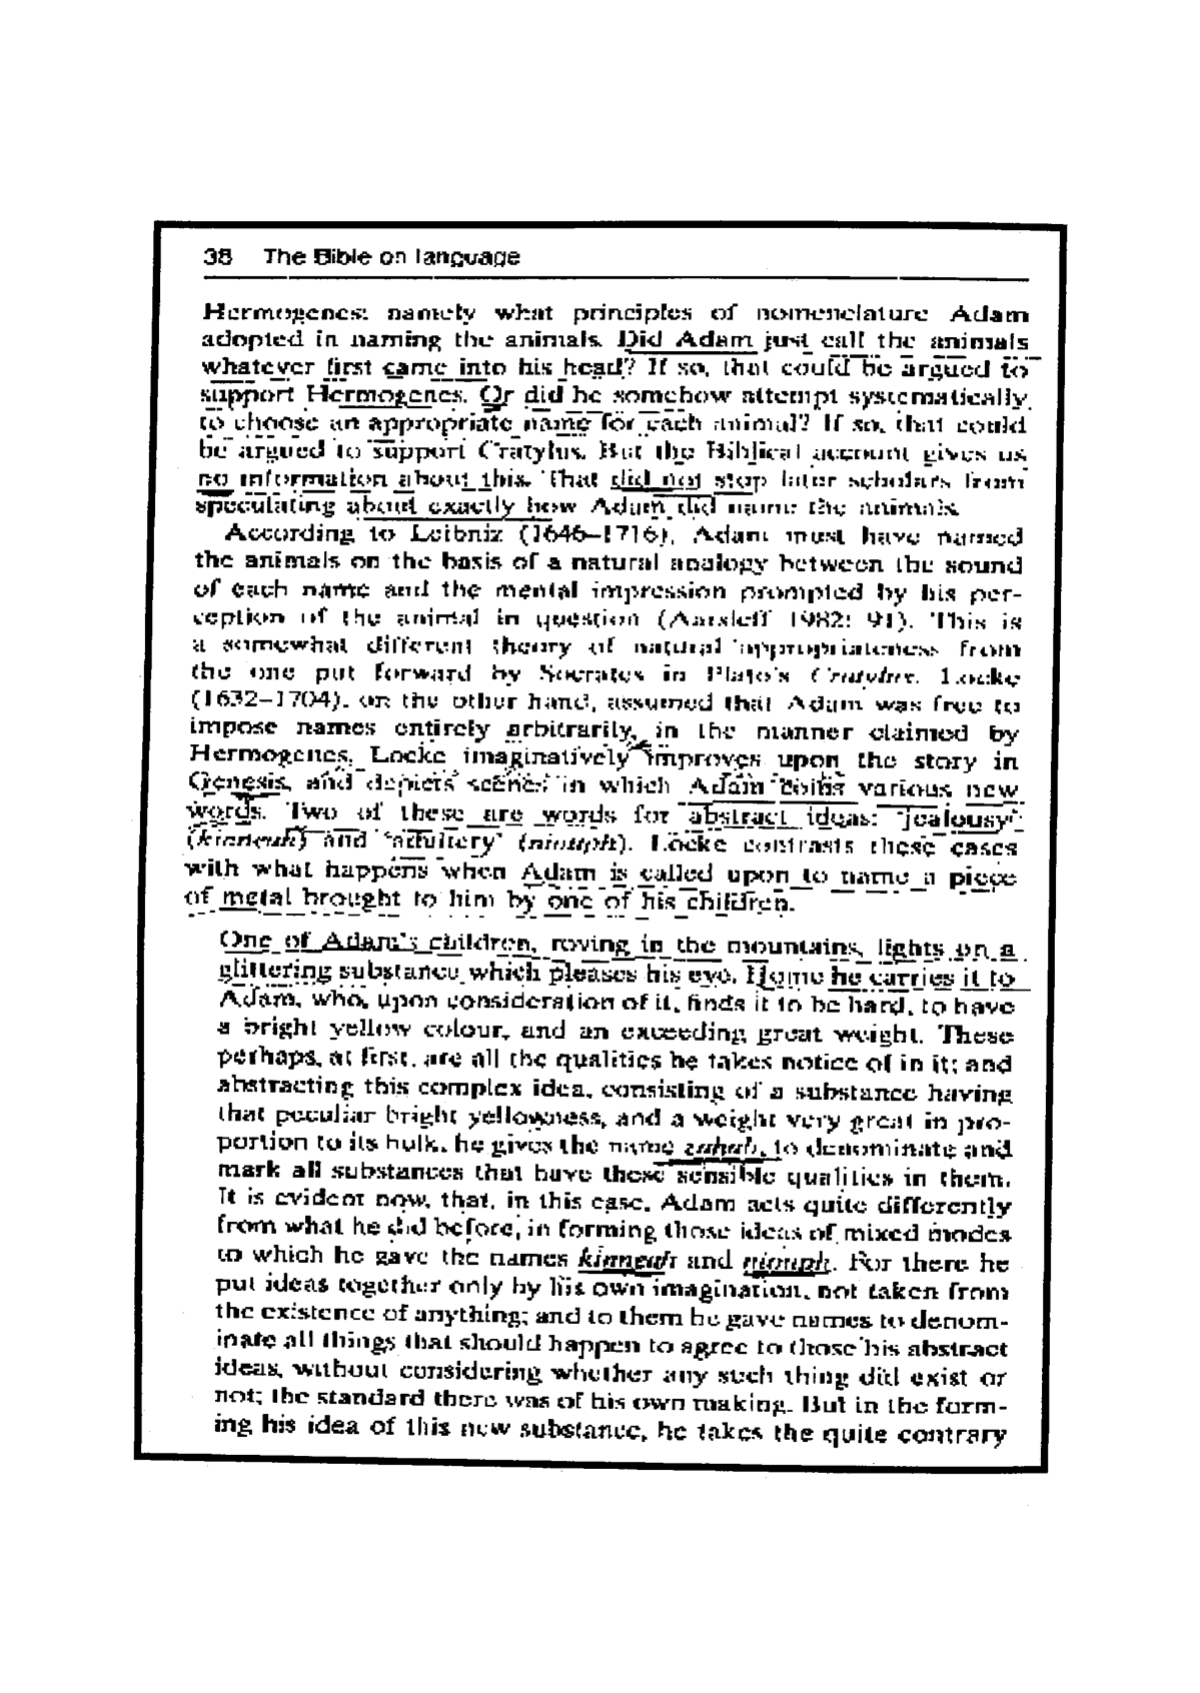 38 The Bible on language
Hermogenes: namely what principles of nomenclature Adam
adopted in naming the animals. Did Adam just call the animals
whatever first came into his head? If so, that could be argued to
support Hermogenes. Or did he somehow attempt systematically
to choose an appropriate name for each animal? If so, that could
be argued to support Cratylus. But the Biblical account gives us
no information about this. That did not stop later scholars from
speculating about exactly how Adam did name the animals.
According to Leibniz (1646–1716), Adam must have named
the animals on the basis of a natural analogy between the sound
of each name and the mental impression prompted by his per-
ception of the animal in question (Aarsleff 1982: 91). This is
a somewhat different theory of natural appropriateness from
the one put forward by Socrates in Plato's Cratylus. Locke
(1632–1704), on the other hand, assumed that Adam was free to
impose names entirely arbitrarily, in the manner claimed by
Hermogenes. Locke imaginatively improves upon the story in
Genesis, and depicts scenes in which Adam coins various new
words. Two of these are words for abstract ideas: 'jealousy'
(kinneah) and 'adultery' (niouph). Locke contrasts these cases
with what happens when Adam is called upon to name a piece
of metal brought to him by one of his children.
One of Adam's children, roving in the mountains, lights on a
glittering substance which pleases his eye. Home he carries it to
Adam, who, upon consideration of it, finds it to be hard, to have
a bright yellow colour, and an exceeding great weight. These
perhaps, at first, are all the qualities he takes notice of in it; and
abstracting this complex idea, consisting of a substance having
that peculiar bright yellowness, and a weight very great in pro-
portion to its bulk, he gives the name zahab, to denominate and
mark all substances that have these sensible qualities in them.
It is evident now, that, in this case, Adam acts quite differently
from what he did before, in forming those ideas of mixed modes
to which he gave the names kinneah and niouph. For there he
put ideas together only by his own imagination, not taken from
the existence of anything; and to them he gave names to denom-
inate all things that should happen to agree to those his abstract
ideas, without considering whether any such thing did exist or
not; the standard there was of his own making. But in the form-
ing his idea of this new substance, he takes the quite contrary